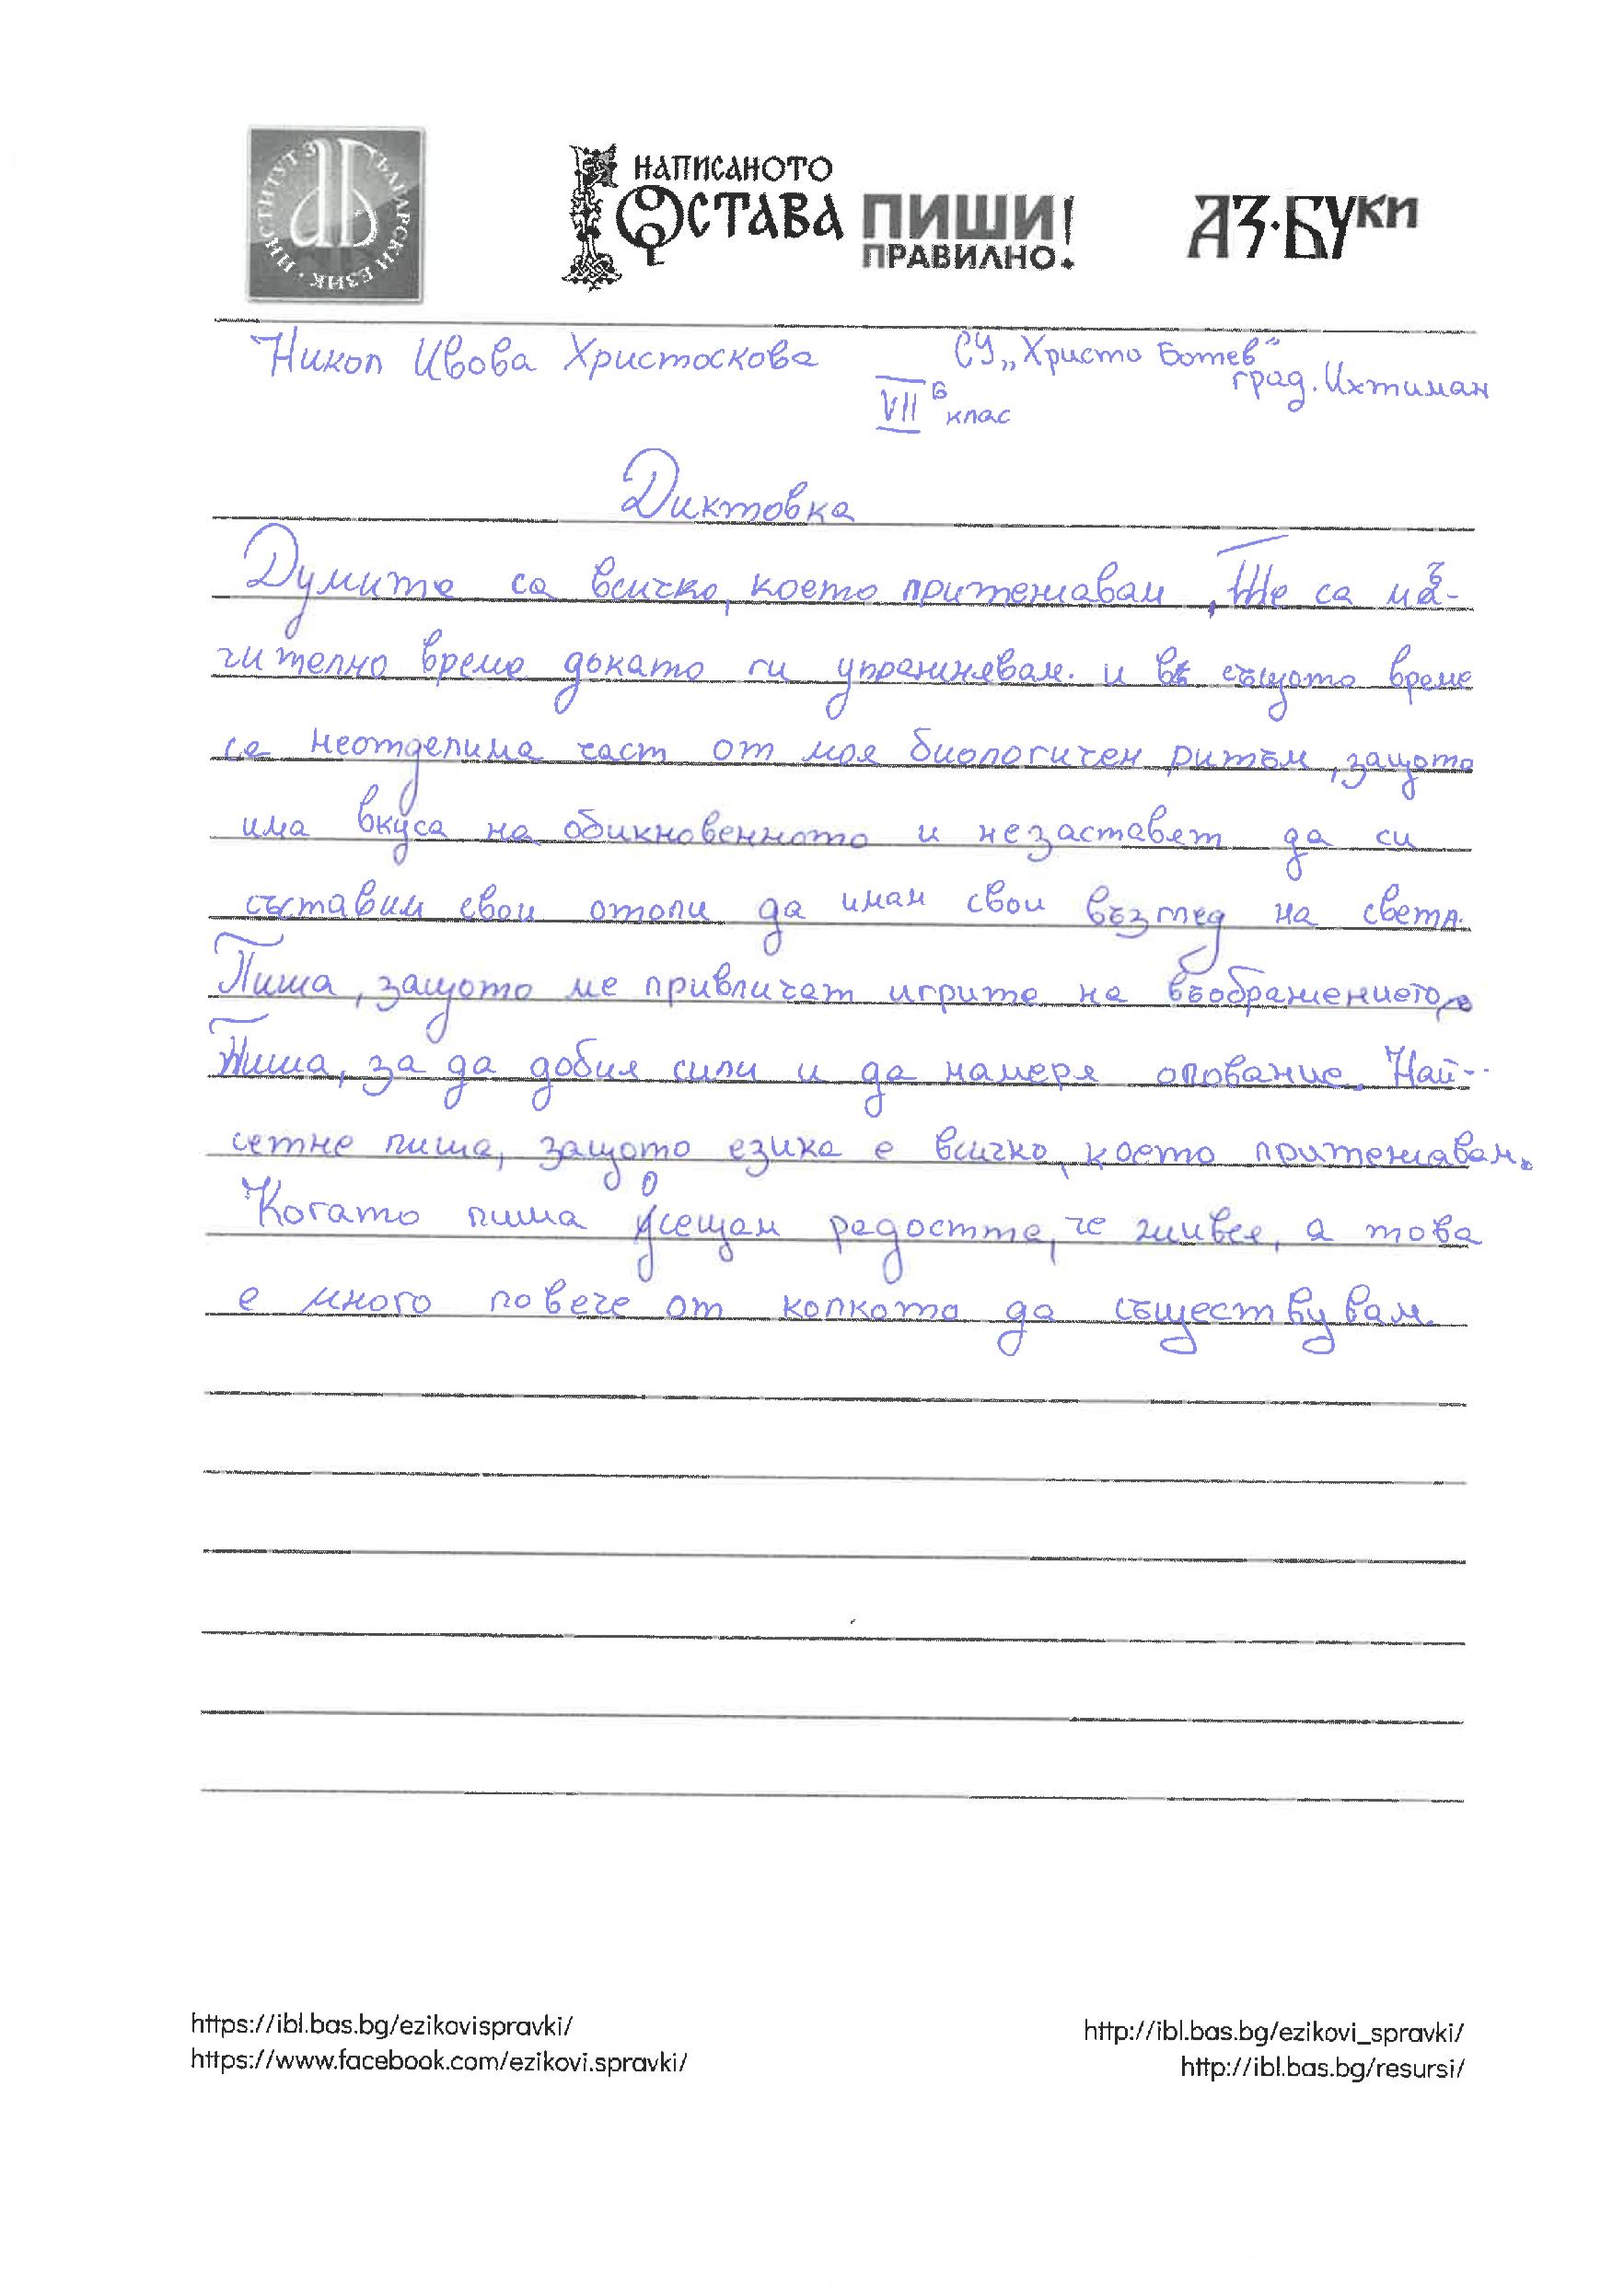 ИНСТИТУТ ЗА БЪЛГАРСКИ ЕЗИК
НАПИСАНОТО
ОСТАВА ПИШИ!
ПРАВИЛНО.
АЗ·БУКИ
Никол Ивова Христоскова СУ „Христо Ботев“
град. Ихтиман
VII б клас
Диктовка
Думите са всичко, което притежавам. Те са мъ-
чително време докато ги упражнявам. и в същото време
са неотделима част от моя биологичен ритъм, защото
има вкуса на обикновенното и незаставят да си
съставим свои отоли да имам свои възглед на света.
Пиша, защото ме привличат игрите на въображението.
Пиша, за да добия сили и да намеря опование. Най-
сетне пиша, защото езика е всичко, което притежавам.
Когато пиша осещам радостта, че живея, а това
е много повече от колкото да съществувам.
https://ibl.bas.bg/ezikovispravki/ http://ibl.bas.bg/ezikovi_spravki/
https://www.facebook.com/ezikovi.spravki/ http://ibl.bas.bg/resursi/